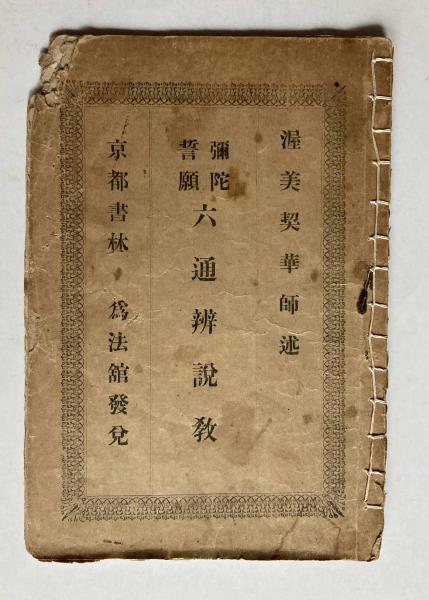 渥美契華師述
彌陀誓願 六通辨說教
京都書林 爲法館發兌